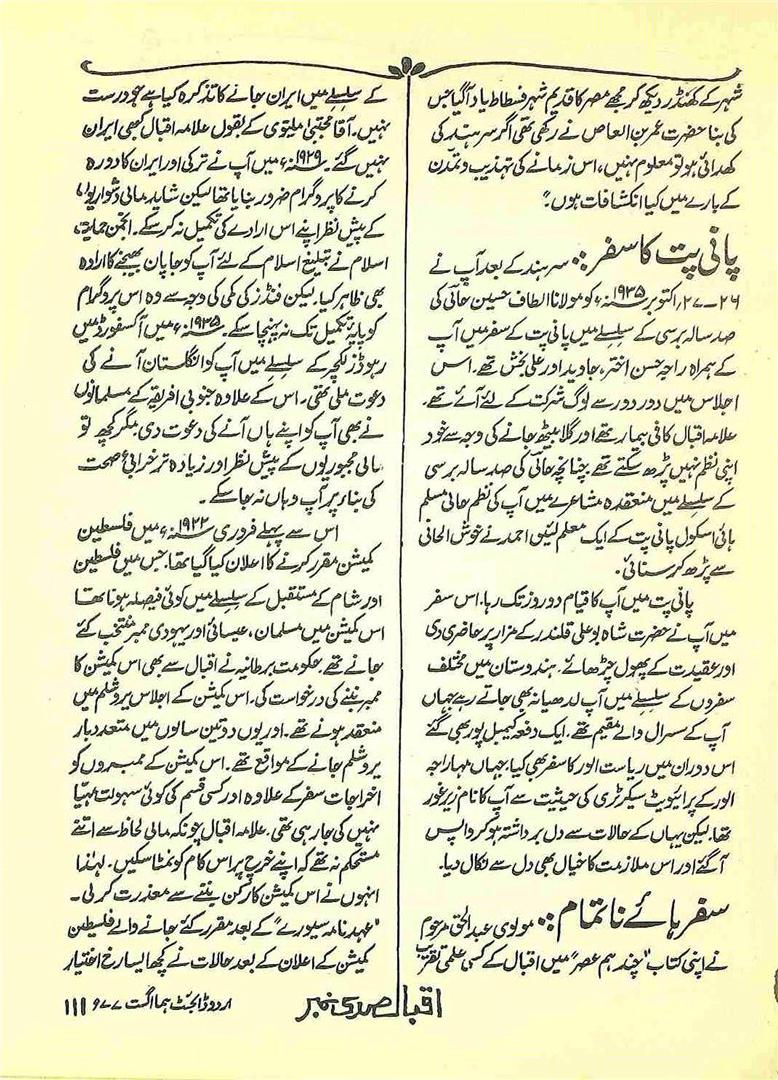 شہر کے کھنڈر دیکھ کر مجھے مصر کا قدیم شہر فسطاط یاد آگیا جس
کی بنا حضرت عمر بن العاص نے رکھی تھی اگر سرہند کی
کھدائی ہو تو معلوم نہیں، اس زمانے کی تہذیب و تمدّن
کے بارے میں کیا انکشافات ہوں"۔
پانی پت کا سفر:۔ سرہند کے بعد آپ نے
۲۶۔۲۷، اکتوبر ۱۹۳۵ء کو مولانا الطاف حسین حالی کی
صد سالہ برسی کے سلسلے میں پانی پت کے سفر میں آپ
کے ہمراہ راجہ حسن اختر، جاوید اور علی بخش تھے۔ اس
اجلاس میں دور دور سے لوگ شرکت کے لئے آئے تھے۔
علامہ اقبال کافی بیمار تھے اور گلا بیٹھ جانے کی وجہ سے خود
اپنی نظم نہیں پڑھ سکتے تھے۔ چنانچہ حالی کی صد سالہ برسی
کے سلسلے میں منعقدہ مشاعرے میں آپ کی نظم حالی مسلم
ہائی اسکول پانی پت کے ایک معلم لئیق احمد نے خوش الحانی
سے پڑھ کر سنائی۔
پانی پت میں آپ کا قیام دو روز تک رہا۔ اس سفر
میں آپ نے حضرت شاہ بو علی قلندر کے مزار پر حاضری دی
اور عقیدت کے پھول چڑھائے۔ ہندوستان میں مختلف
سفروں کے سلسلے میں آپ لدھیانہ بھی جاتے رہے جہاں
آپ کے سسرال والے مقیم تھے۔ ایک دفعہ کیمبل پور بھی گئے
اس دوران میں ریاست الور کا سفر بھی کیا، جہاں مہاراجہ
الور کے پرائیویٹ سیکرٹری کی حیثیت سے آپ کا نام زیر غور
تھا۔ لیکن یہاں کے حالات سے دل برداشتہ ہو کر واپس
آگئے اور اس ملازمت کا خیال بھی دل سے نکال دیا۔
سفر ہائے ناتمام:۔ مولوی عبدالحق مرحوم
نے اپنی کتاب "چند ہم عصر" میں اقبال کے کسی علمی تقریب
کے سلسلے میں ایران جانے کا تذکرہ کیا ہے جو درست
نہیں۔ آقا مجتبیٰ ملیتوی کے بقول علامہ اقبال کبھی ایران
نہیں گئے۔ ۱۹۲۹ء میں آپ نے ترکی اور ایران کا دورہ
کرنے کا پروگرام ضرور بنایا تھا لیکن شاید مالی دشواریوں
کے پیش نظر اپنے اس ارادے کی تکمیل نہ کر سکے۔ انجمن حمایت
اسلام نے تبلیغ اسلام کے لئے آپ کو جاپان بھیجنے کا ارادہ
بھی ظاہر کیا۔ لیکن فنڈز کی کمی کی وجہ سے وہ اس پروگرام
کو پایۂ تکمیل تک نہ پہنچا سکے۔ ۱۹۳۵ء میں آکسفورڈ میں
رہوڈز لیکچر کے سلسلے میں آپ کو انگلستان آنے کی
دعوت ملی تھی۔ اس کے علاوہ جنوبی افریقہ کے مسلمانوں
نے بھی آپ کو اپنے ہاں آنے کی دعوت دی مگر کچھ تو
مالی مجبوریوں کے پیش نظر اور زیادہ تر خرابیٔ صحت
کی بناء پر آپ وہاں نہ جا سکے۔
اس سے پہلے فروری ۱۹۲۲ء میں فلسطین
کمیشن مقرر کرنے کا اعلان کیا گیا تھا۔ جس میں فلسطین
اور شام کے مستقبل کے سلسلے میں کوئی فیصلہ ہونا تھا
اس کمیشن میں مسلمان، عیسائی اور یہودی ممبر منتخب کئے
جانے تھے۔ حکومت برطانیہ نے اقبال سے بھی اس کمیشن کا
ممبر بننے کی درخواست کی۔ اس کمیشن کے اجلاس یروشلم میں
منعقد ہونے تھے۔ اور یوں دو تین سالوں میں متعدد بار
یروشلم جانے کے مواقع تھے۔ اس کمیشن کے ممبروں کو
اخراجات سفر کے علاوہ اور کسی قسم کی کوئی سہولت مہیّا
نہیں کی جا رہی تھی۔ علامہ اقبال چونکہ مالی لحاظ سے اتنے
مستحکم نہ تھے کہ اپنے خرچ پر اس کام کو نمٹا سکیں۔ لہٰذا
انہوں نے اس کمیشن کا رکن بننے سے معذرت کر لی۔
"عہد نامہ سیورے" کے بعد مقرر کئے جانے والے فلسطین
کمیشن کے اعلان کے بعد حالات نے کچھ ایسا رخ اختیار
اقبال صدی نمبر
اردو ڈائجسٹ ہما اگست ۷۷ء ۱۱۱